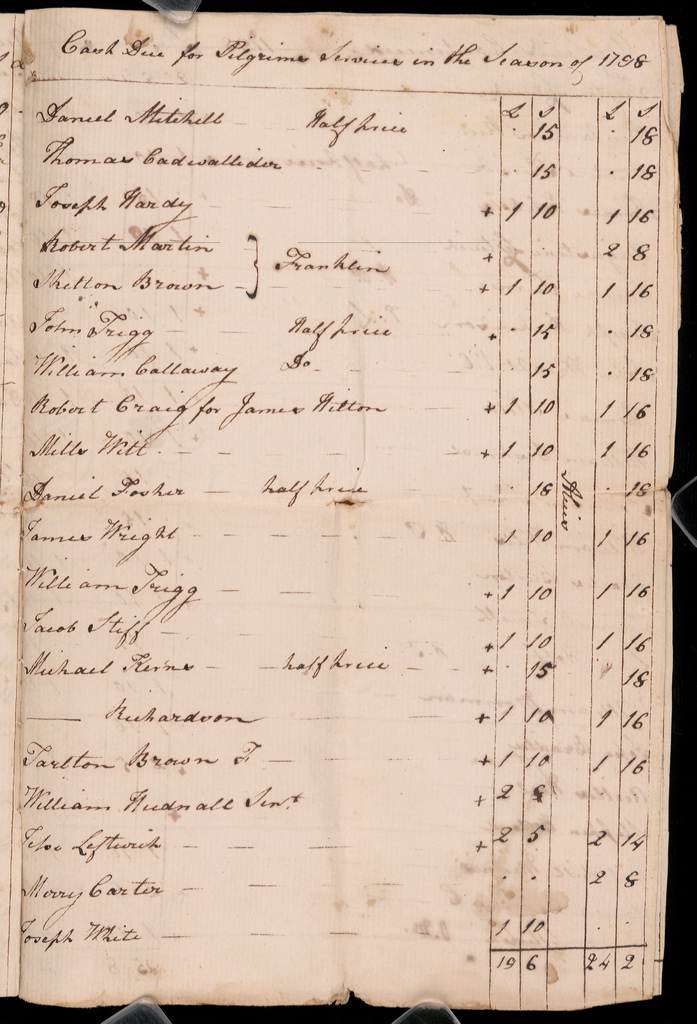 Cash Due for Pilgrims Services in the Season of 1798
£ s £ s
Daniel Mitchell Half price . 15 . 18
Thomas Cadwallider . 15 . 18
Joseph Hardy + 1 10 1 16
Robert Martin + 2 8
Franklin
Skelton Brown + 1 10 1 16
John Trigg Half price + . 15 . 18
William Callaway Do . 15 . 18
Robert Craig for James Hilton + 1 10 1 16
Mills Witt + 1 10 1 16
Daniel Tosher half price . 18 . 18
James Wright 1 10 1 16
William Trigg + 1 10 1 16
Jacob Stiff + 1 10 1 16
Michael Kerns half price + . 15 18
Richardson + 1 10 1 16
Tarlton Brown F + 1 10 1 16
William Hudnall Senr + 2 8
Leftwich + 2 5 2 14
Merry Carter . . 2 8
Joseph White 1 10 . .
19 6 24 2